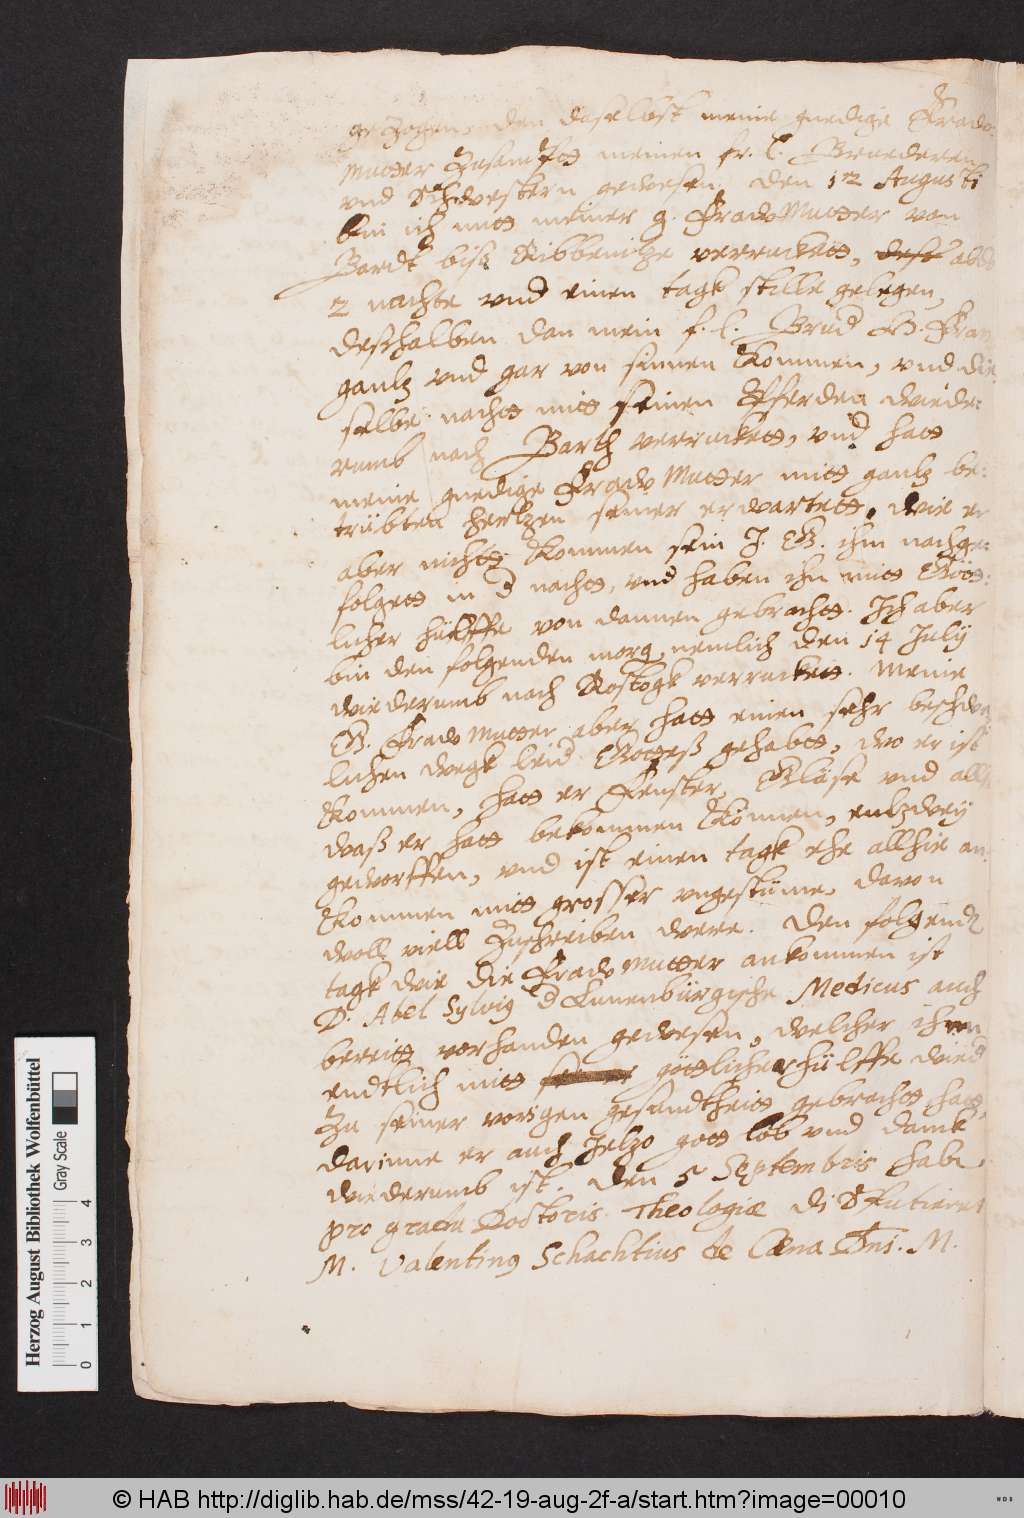 gezogen, den daselbst meine gnedige Fraw
Mutter Zusampt meinen fr. l. Bruederen
vnd Schwestern gewesen, den 12 Augusti
bin ich mitt meiner g. Fraw Mutter von
Bardt biß Ribbenitze verrucket, dest alda
2 nachte vnd einen tagk stille gelegen,
deßhalben dan mein f. l. Brud H. Fran
gantz vnd gar von sinnen kommen, vnd die
selbe nachtt mitt seinen Pferden wiede:
rumb nach Barth verruckett, vnd hatt
meine gnedige Fraw Mutter mitt gantz be:
trübten hertzen seiner erwartett, wie er
aber nichtt kommen sein J. G. ihm nachge:
folgett in d nachtt, vnd haben ihn mitt Gött:
licher hülffe von dannen gebrachtt. Ich aber
bin den folgenden morg, nemlich den 14 Julÿ
wiederumb nach Rostogk verruckett. Meine
G. Fraw Mutter aber hatt einen sehr beschwe
lichen wegk leid Gotteß gehabtt, wo er ist
kommen, hatt er Fenster, Gläse vnd alle
waß er hatt bekommen können, entzwey
geworffen, vnd ist einen tagk ehe allhie an:
kommen mitt grosser vngestüme, davon
woll viell Zuschreiben were. Den folgend
tagk wie die Fraw Mutter ankommen ist
D. Abel Sylvig d Lunenbürgische Medicus auch
bereitt vorhanden gewesen, welcher ihm
endtlich mitt göttlicher hülffe wied
Zu seiner vorigen gesundtheitt gebrachtt hatt,
darinne er auch Jetzo gott lob vnd danck
wiederumb ist. Den 5 Septembris habe
pro gradu Doctoris Theologiæ disputieret
M. Valenting Schachtius de Cœna Dni. M.
Herzog August Bibliothek Wolfenbüttel
Gray Scale
0 1 2 3 4
© HAB http://diglib.hab.de/mss/42-19-aug-2f-a/start.htm?image=00010